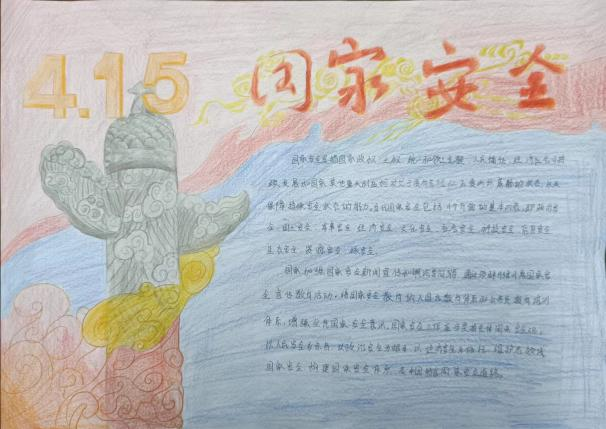 4.15 国家安全
国家安全是指国家政权、主权、统一和领土完整、人民福祉、经济社会可持
续发展和国家其他重大利益相对处于没有危险和不受内外威胁的状态,以及
保障持续安全状态的能力。当代国家安全包括
国土安全、军事安全、经济安全、文化安全、社会安全、科技安全、信息安全
生态安全、资源安全、核安全。
国家加强国家安全新闻宣传和舆论引导,通过多种形式开展国家安
全宣传教育活动,将国家安全教育纳入国民教育体系和公务员教育培训
体系,增强全民国家安全意识。国家安全工作
以人民安全为宗旨,以政治安全为根本,以经济安全为基础,维护各领域
国家安全,构建国家安全体系,走中国特色国家安全道路。